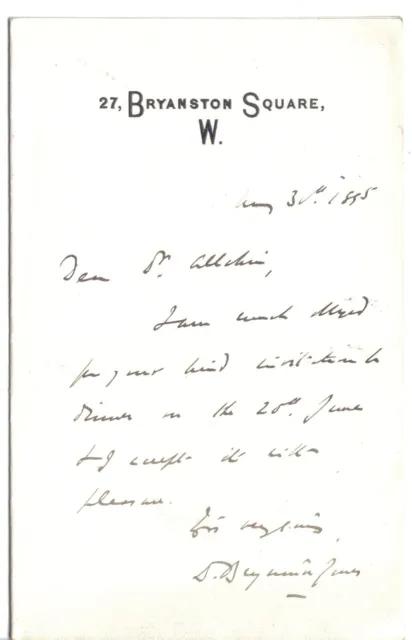 27, BRYANSTON SQUARE,
W.
May 31st. 1895
Dear Dr. Allchin,
I am much obliged
for your kind invitation to
dinner on the 20th. June
& I accept it with
pleasure.
Yrs very
Jones